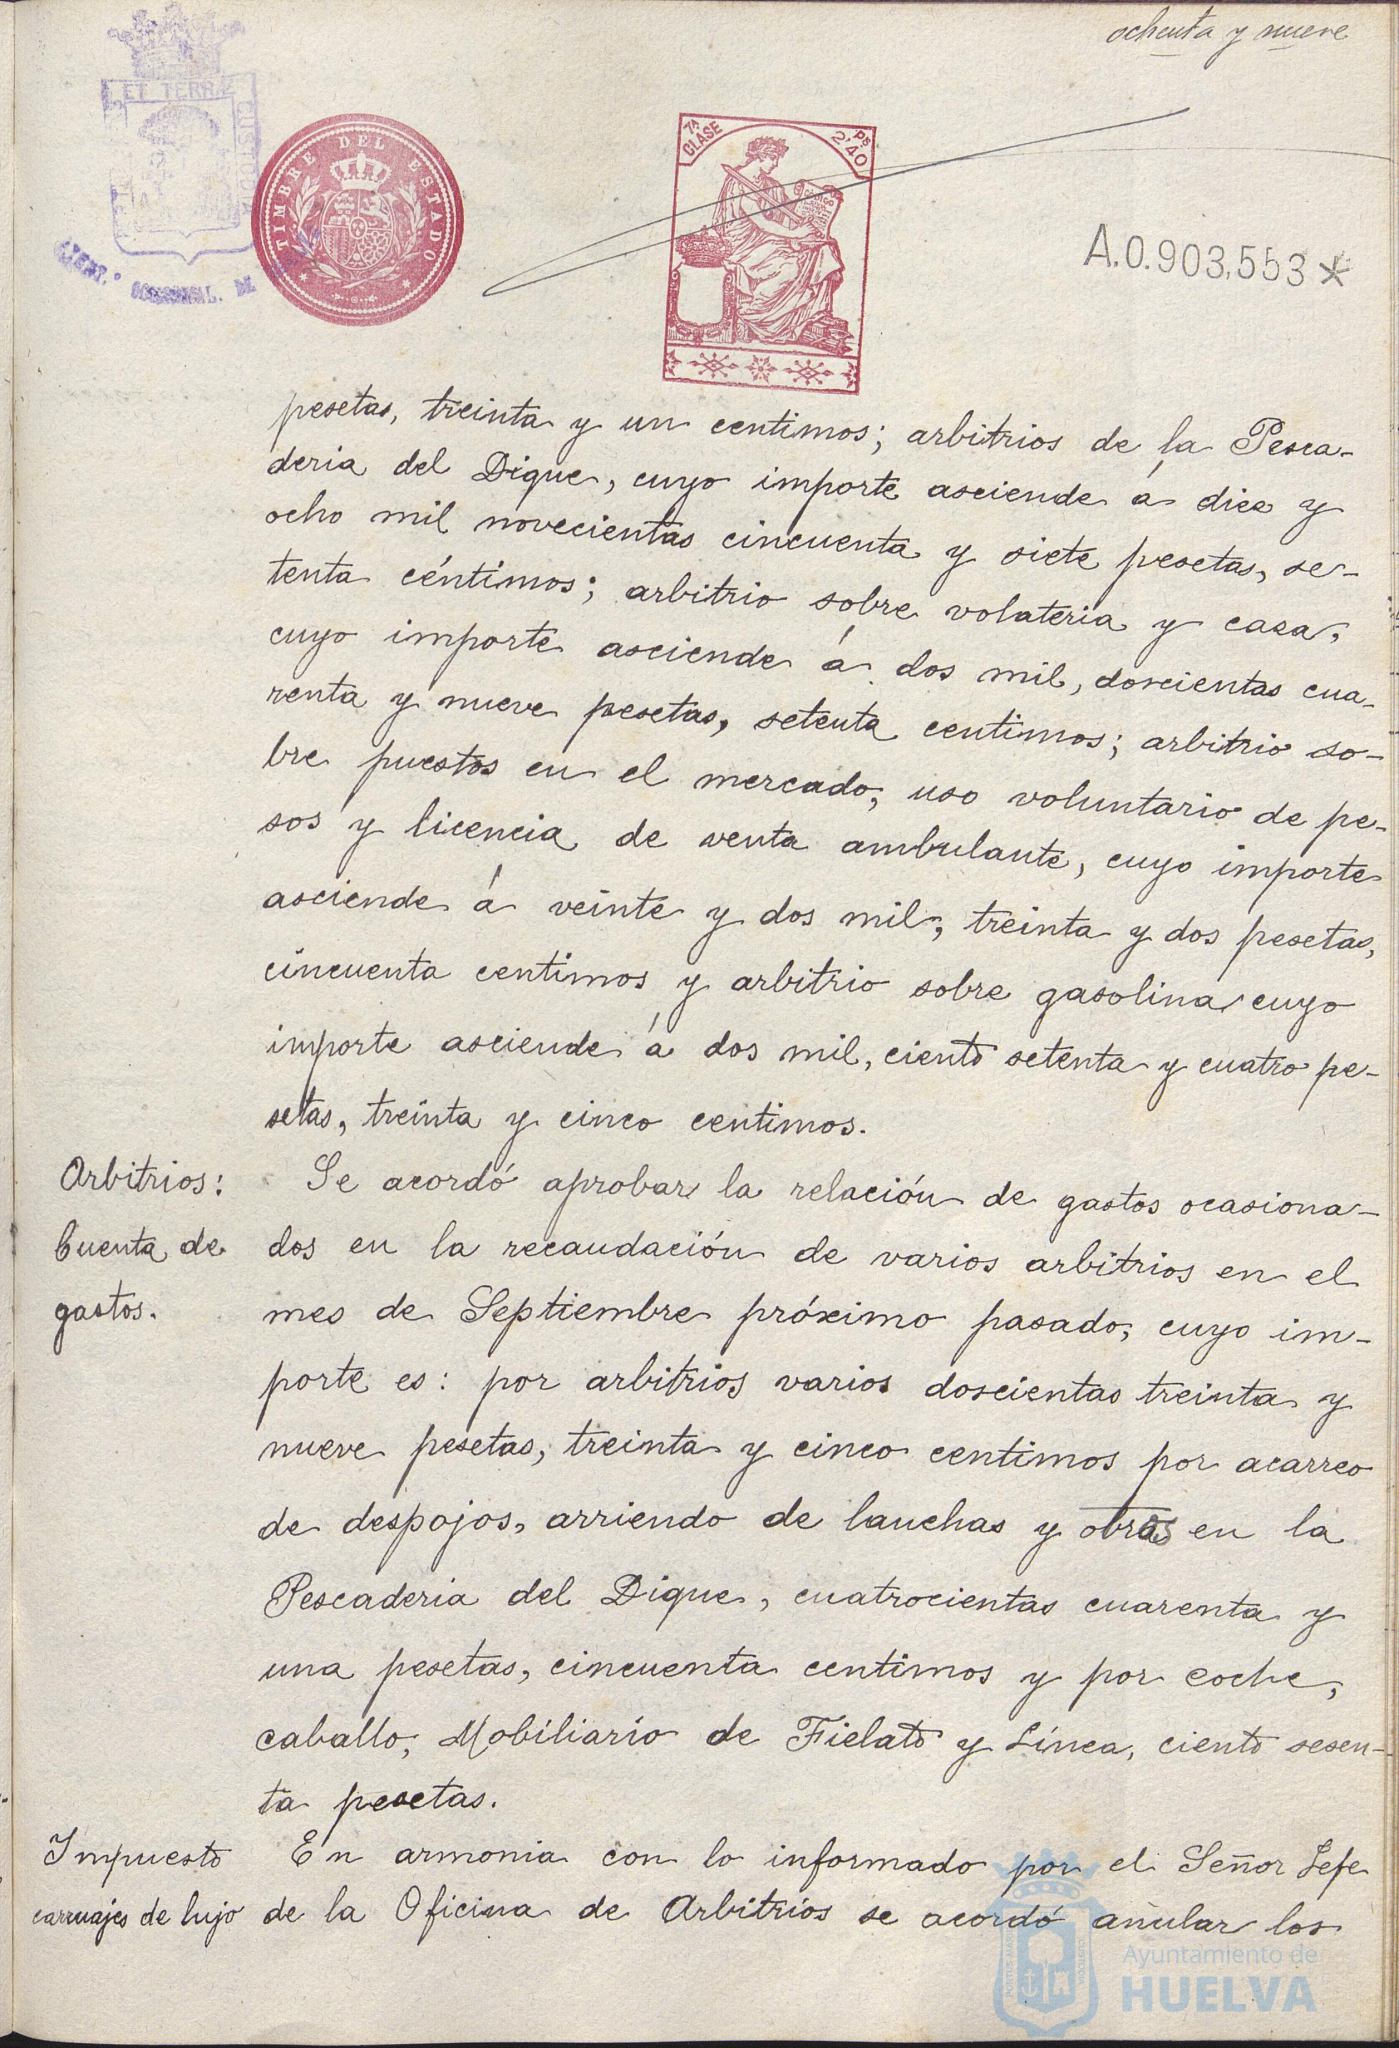 ochenta y nueve
ET TERRÆ
CUSTODIA
TIMBRE DEL ESTADO
7ª CLASE
Pˢ 2'40
A.0.903,553*
pesetas, treinta y un centimos; arbitrios de la Pesca-
deria del Dique, cuyo importe asciende á diez y
ocho mil novecientas cincuenta y siete pesetas, se-
tenta céntimos; arbitrio sobre volateria y caza,
cuyo importe asciende á dos mil, doscientas cua-
renta y nueve pesetas, setenta centimos; arbitrio so-
bre puestos en el mercado, uso voluntario de pe-
sos y licencia de venta ambulante, cuyo importe
asciende á veinte y dos mil, treinta y dos pesetas,
cincuenta centimos y arbitrio sobre gasolina cuyo
importe asciende á dos mil, ciento setenta y cuatro pe-
setas, treinta y cinco centimos.
Arbitrios:
Cuenta de
gastos.
Se acordó aprobar la relación de gastos ocasiona-
dos en la recaudación de varios arbitrios en el
mes de Septiembre próximo pasado, cuyo im-
porte es: por arbitrios varios doscientas treinta y
nueve pesetas, treinta y cinco centimos por acarreo
de despojos, arriendo de lanchas y obras en la
Pescaderia del Dique, cuatrocientas cuarenta y
una pesetas, cincuenta centimos y por coche,
caballo, Mobiliario de Fielato y Línea, ciento sesen-
ta pesetas.
Impuesto
carruajes de lujo
En armonia con lo informado por el Señor Jefe
de la Oficina de Arbitrios se acordó anular los
Ayuntamiento de
HUELVA